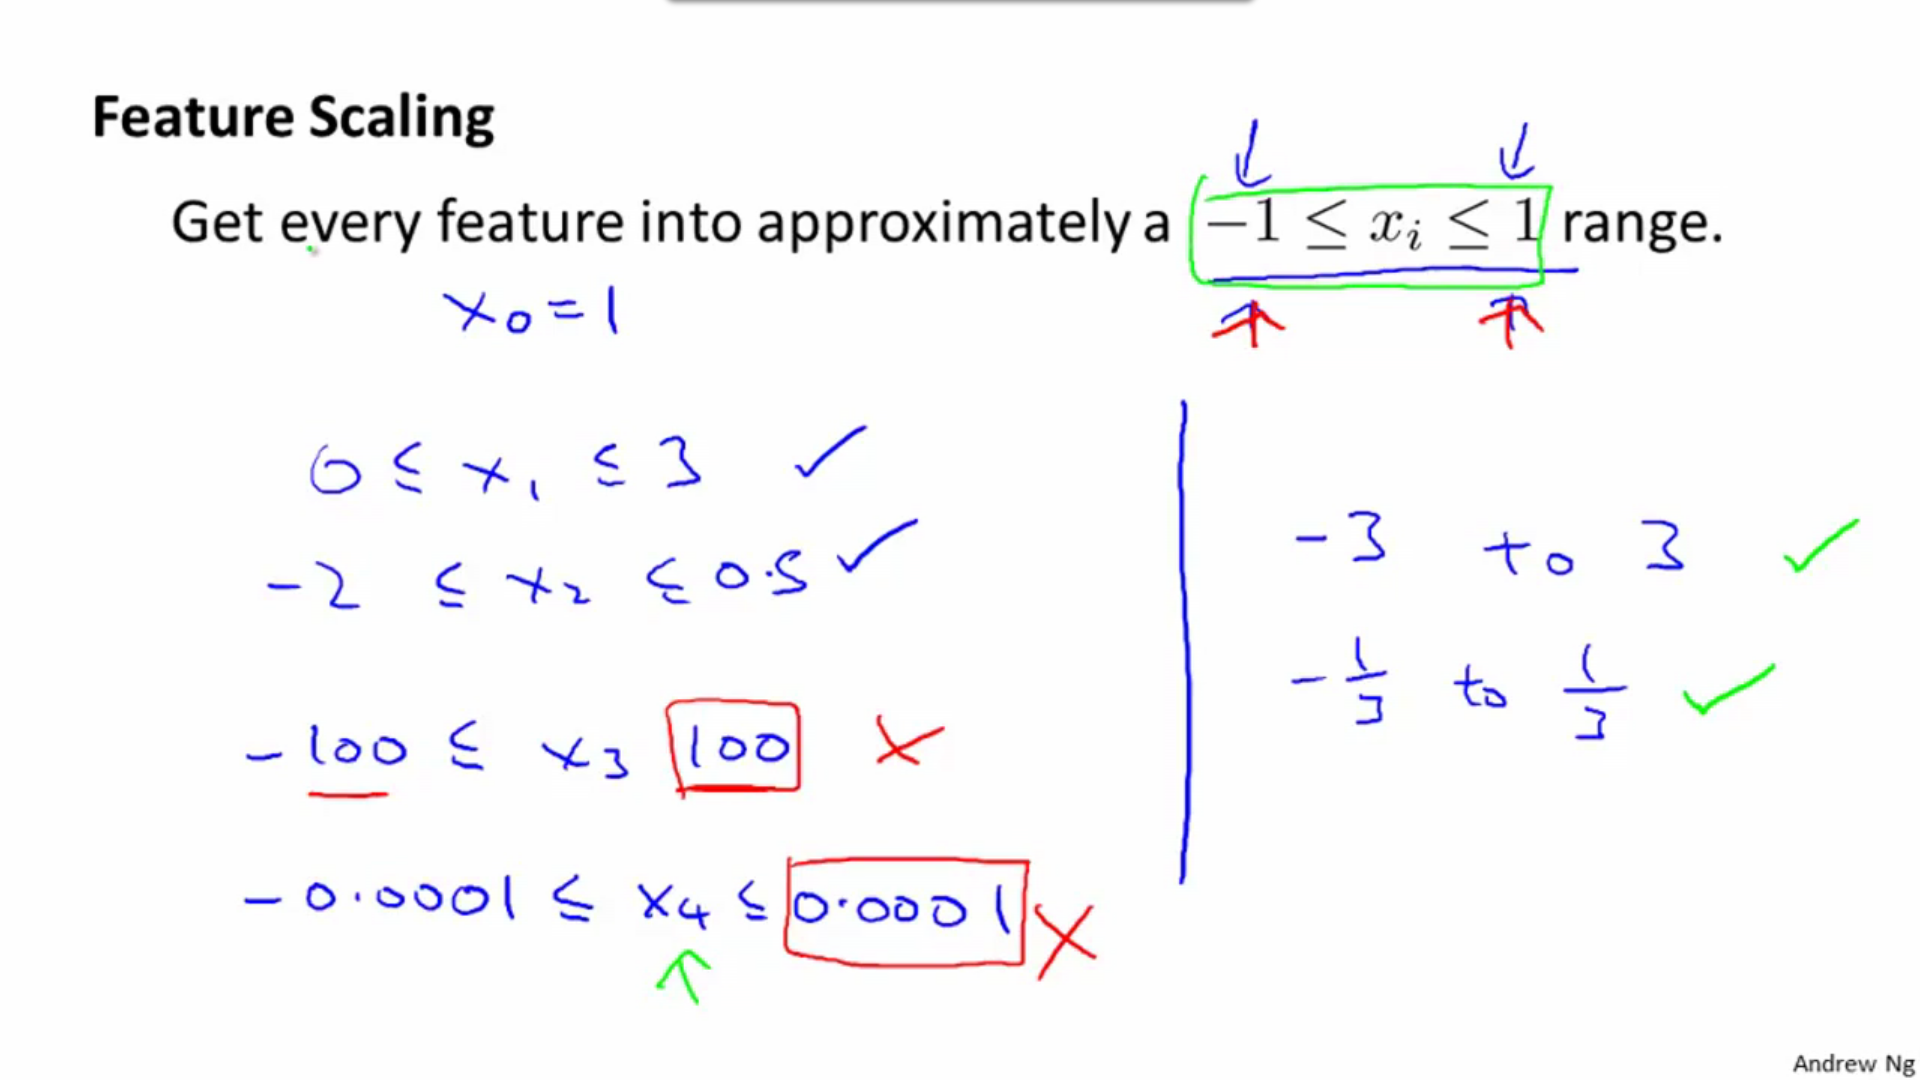 Feature Scaling
Get every feature into approximately a −1 ≤ xᵢ ≤ 1 range.
x₀ = 1
0 ≤ x₁ ≤ 3 ✓
-2 ≤ x₂ ≤ 0.5 ✓
-100 ≤ x₃ 100 ✗
-0.0001 ≤ x₄ ≤ 0.0001 ✗
-3 to 3 ✓
-1/3 to 1/3 ✓
Andrew Ng